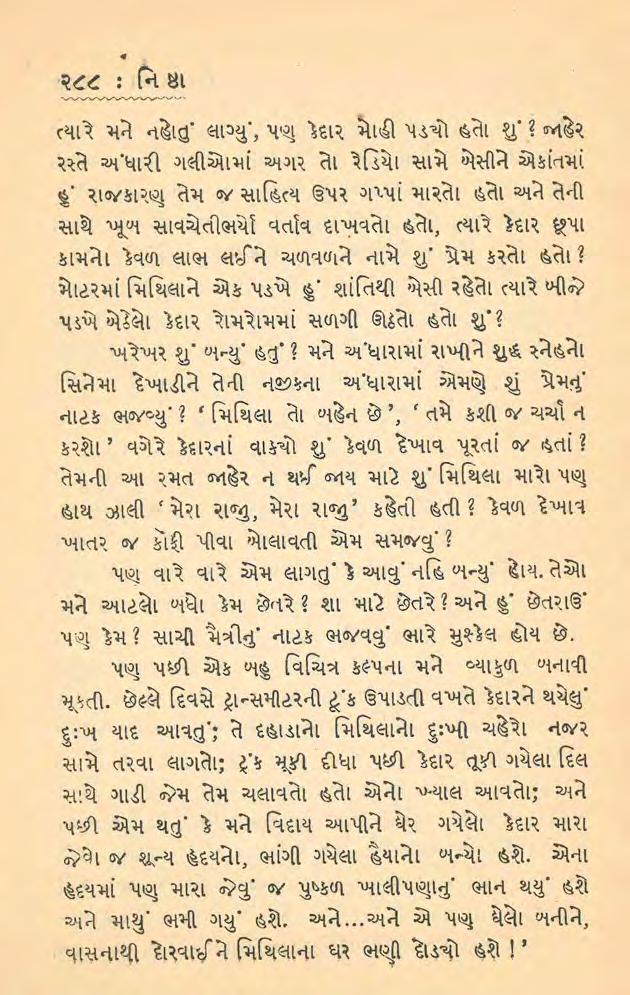 ૨૮૮ : નિષ્ઠા
ત્યારે મને નહોતું લાગ્યું, પણ કેદાર મોહી પડ્યો હતો શું ? જાહેર
રસ્તે અંધારી ગલીઓમાં અગર તો રેડિયો સામે બેસીને એકાંતમાં
હું રાજકારણ તેમ જ સાહિત્ય ઉપર ગપ્પાં મારતો હતો અને તેની
સાથે ખૂબ સાવચેતીભર્યો વર્તાવ દાખવતો હતો, ત્યારે કેદાર છૂપા
કામનો કેવળ લાભ લઈને ચળવળને નામે શું પ્રેમ કરતો હતો ?
મોટરમાં મિથિલાને એક પડખે હું શાંતિથી બેસી રહેતો ત્યારે બીજે
પડખે બેઠેલો કેદાર રોમરોમમાં સળગી ઊઠતો હતો શું ?
ખરેખર શું બન્યું હતું ? મને અંધારામાં રાખીને શુદ્ધ સ્નેહનો
સિનેમા દેખાડીને તેની નજીકના અંધારામાં એમણે શું પ્રેમનું
નાટક ભજવ્યું ? ‘ મિથિલા તો બહેન છે ’, ‘ તમે કશી જ ચર્ચા ન
કરશો ’ વગેરે કેદારનાં વાક્યો શું કેવળ દેખાવ પૂરતાં જ હતાં ?
તેમની આ રમત જાહેર ન થઈ જાય માટે શું મિથિલા મારો પણ
હાથ ઝાલી ‘ મેરા રાજા, મેરા રાજા ’ કહેતી હતી ? કેવળ દેખાવ
ખાતર જ કૉફી પીવા બોલાવતી એમ સમજવું ?
પણ વારે વારે એમ લાગતું કે આવું નહિ બન્યું હોય. તેઓ
મને આટલો બધો કેમ છેતરે ? શા માટે છેતરે ? અને હું છેતરાઉં
પણ કેમ ? સાચી મૈત્રીનું નાટક ભજવવું ભારે મુશ્કેલ હોય છે.
પણ પછી એક બહુ વિચિત્ર કલ્પના મને વ્યાકુળ બનાવી
મૂકતી. છેલ્લે દિવસે ટ્રાન્સમીટરની ટ્રંક ઉપાડતી વખતે કેદારને થયેલું
દુઃખ યાદ આવતું; તે દહાડાનો મિથિલાનો દુઃખી ચહેરો નજર
સામે તરવા લાગતો; ટ્રંક મૂકી દીધા પછી કેદાર તૂકી ગયેલા દિલ
સાથે ગાડી જેમ તેમ ચલાવતો હતો એનો ખ્યાલ આવતો; અને
પછી એમ થતું કે મને વિદાય આપીને ઘેર ગયેલો કેદાર મારા
જેવો જ શૂન્ય હૃદયનો, ભાંગી ગયેલા હૈયાનો બન્યો હશે. એના
હૃદયમાં પણ મારા જેવું જ પુષ્કળ ખાલીપણાનું ભાન થયું હશે
અને માથું ભમી ગયું હશે. અને...અને એ પણ ઘેલો બનીને,
વાસનાથી દોરવાઈને મિથિલાના ઘર ભણી દોડ્યો હશે ! ’